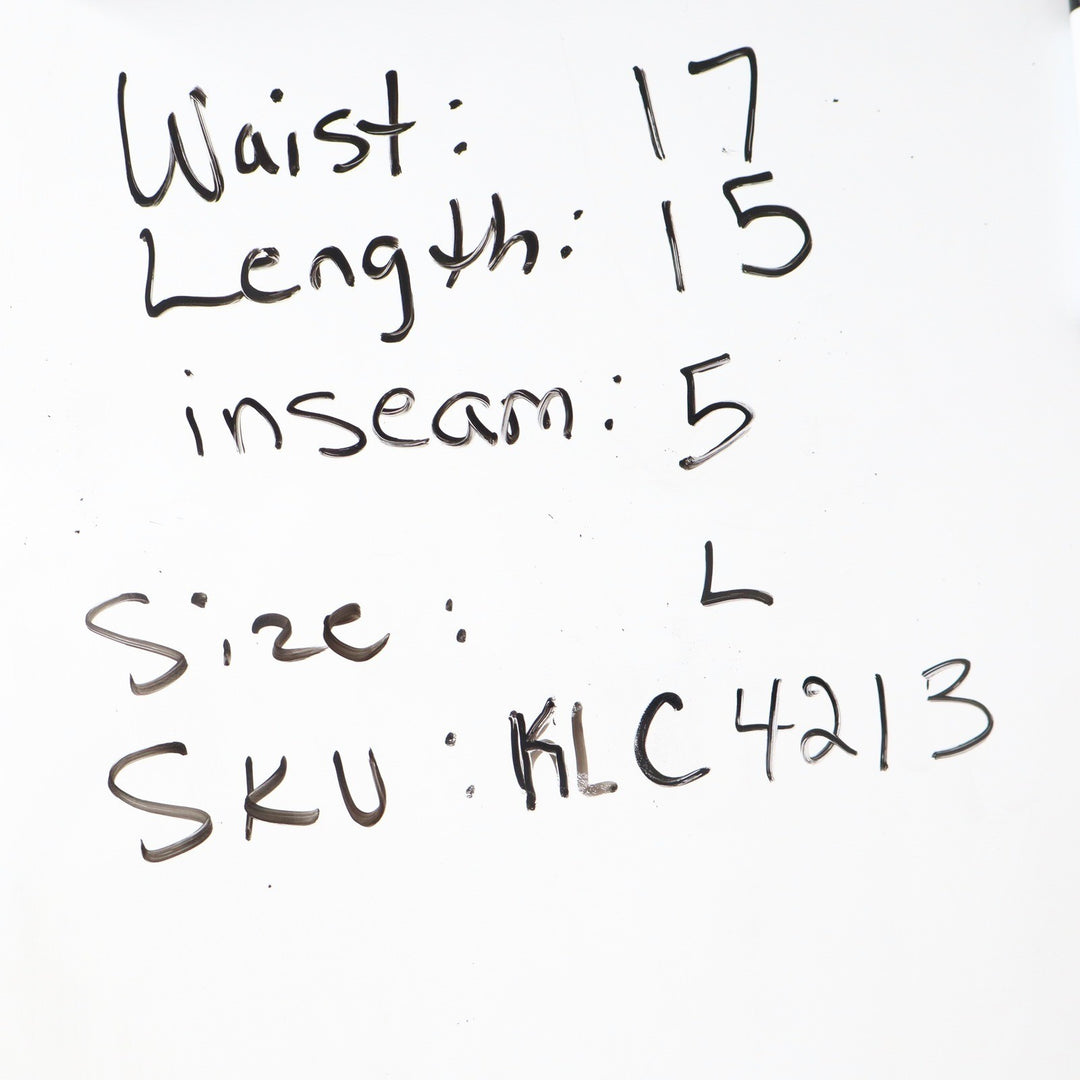 Waist: 17
Length: 15
inseam: 5
Size: L
SKU: KLC4213